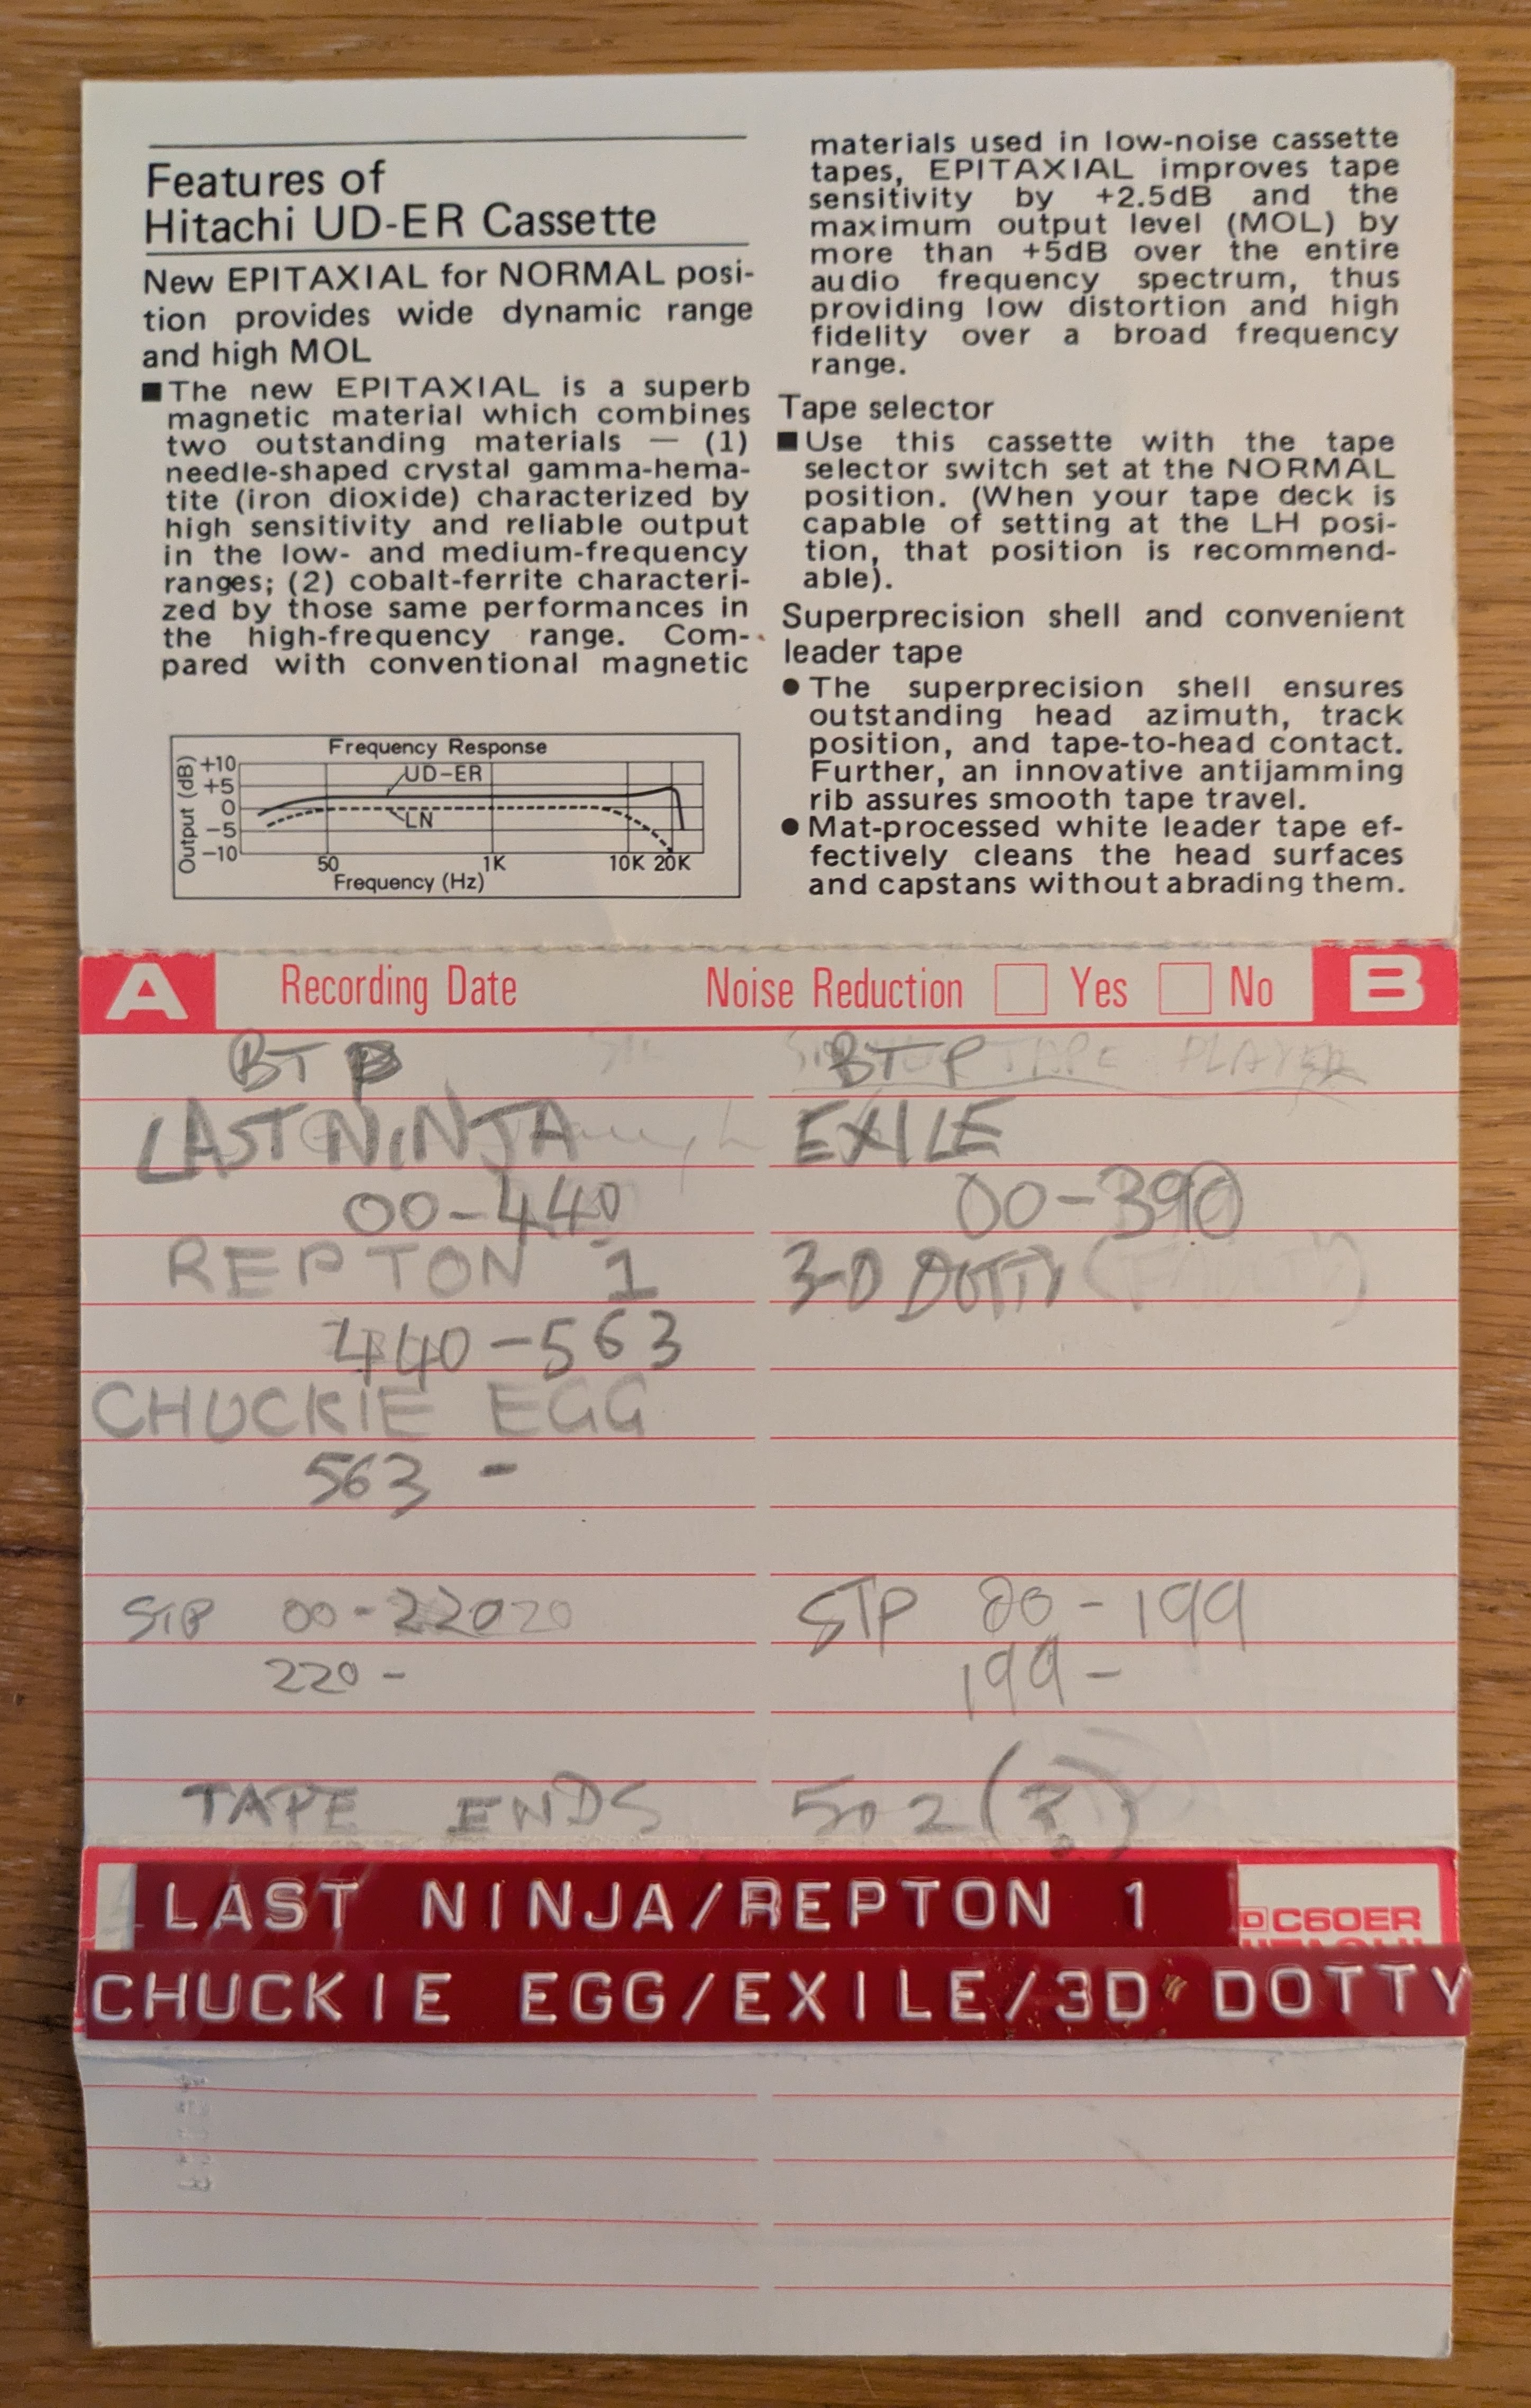 Features of
Hitachi UD-ER Cassette
New EPITAXIAL for NORMAL posi-
tion provides wide dynamic range
and high MOL
■ The new EPITAXIAL is a superb
magnetic material which combines
two outstanding materials — (1)
needle-shaped crystal gamma-hema-
tite (iron dioxide) characterized by
high sensitivity and reliable output
in the low- and medium-frequency
ranges; (2) cobalt-ferrite characteri-
zed by those same performances in
the high-frequency range. Com-
pared with conventional magnetic
Frequency Response
Output (dB)
+10
+5
0
−5
−10
UD-ER
LN
50 1K 10K 20K
Frequency (Hz)
materials used in low-noise cassette
tapes, EPITAXIAL improves tape
sensitivity by +2.5dB and the
maximum output level (MOL) by
more than +5dB over the entire
audio frequency spectrum, thus
providing low distortion and high
fidelity over a broad frequency
range.
Tape selector
■ Use this cassette with the tape
selector switch set at the NORMAL
position. (When your tape deck is
capable of setting at the LH posi-
tion, that position is recommend-
able).
Superprecision shell and convenient
leader tape
● The superprecision shell ensures
outstanding head azimuth, track
position, and tape-to-head contact.
Further, an innovative antijamming
rib assures smooth tape travel.
● Mat-processed white leader tape ef-
fectively cleans the head surfaces
and capstans without abrading them.
A Recording Date Noise Reduction Yes No B
BTP
LAST NINJA
00-440
REPTON 1
440-563
CHUCKIE EGG
563 -
STP 00-220
220 -
BTP TAPE PLAYER
EXILE
00-390
3-D DOTTY
STP 00-199
199 -
TAPE ENDS 502 (?)
LAST NINJA/REPTON 1
C60ER
CHUCKIE EGG/EXILE/3D" DOTTY